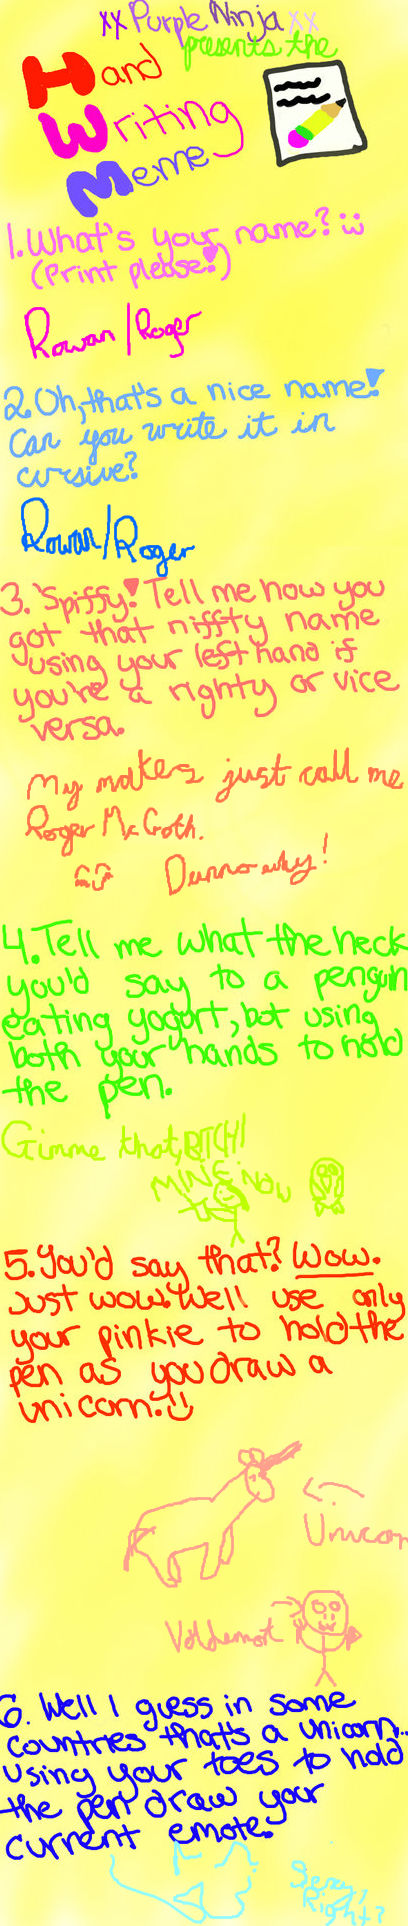 xx Purple Ninja xx
presents the
Hand
Writing
Meme
1. What's your name? :)
(Print please!)
Rowan/Roger
2. Oh, that's a nice name!
Can you write it in
cursive?
Rowan/Roger
3. Spiffy! Tell me how you
got that niffty name
using your left hand if
you're a righty or vice
versa.
My makers just call me
Roger McGoth.
Dunno why!
4. Tell me what the heck
you'd say to a penguin
eating yogurt, but using
both your hands to hold
the pen.
Gimme that, BITCH!
MINE NOW
5. You'd say that? Wow.
Just wow. Well use only
your pinkie to hold the
pen as you draw a
unicorn. :)
Unicorn
Voldemort
6. Well I guess in some
countries that's a unicorn..
Using your toes to hold
the pen draw your
current emote.
Sexy,
Right?